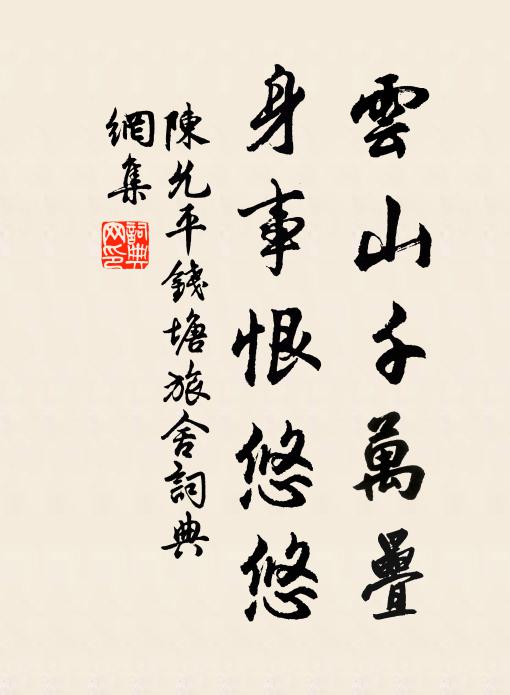 雲山千萬疊
身事恨悠悠
陳允平錢塘旅舍詞典
網集
詞典
网印